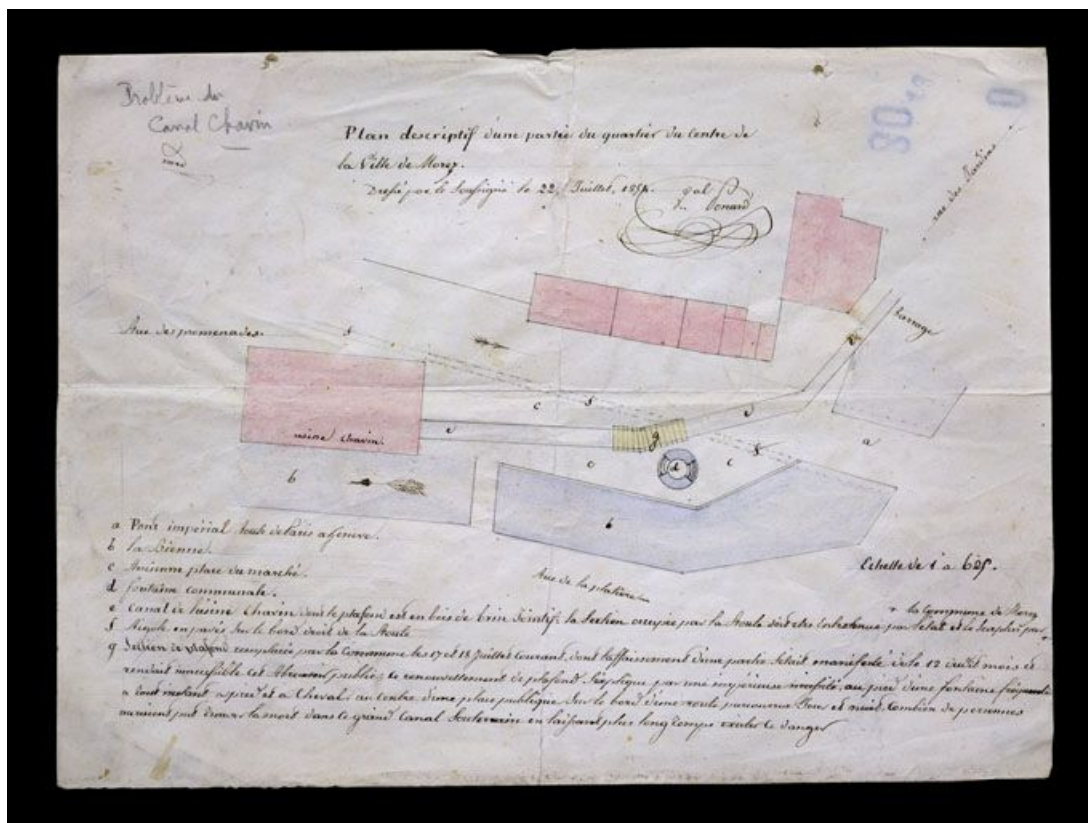 Problème du
Canal Chavin
Plan descriptif d'une partie du quartier du centre de
la Ville de Morez.
Dressé par le Soussigné le 22, Juillet, 1854.
rue des Jardins
barrage
Rue des promenades.
f
c
f
e
e
a
usine Chavin.
g
f
c
d
c
b
b
a Pont impérial Route de Paris a Geneve.
b la Bienne.
c Ancienne place du marché.
d fontaine communale.
Rue de la platière
Echelle de 1 a 625.
+ la Commune de Morez
e Canal de l'usine Chavin dont le plafond est en bois de brin Jointif, la Section occupée par la Route doit etre Entretenue par l'etat et le Surplus par +
f Rigole en pavés Sur le bord droit de la Route
g Section de plafond remplacée par la Commune les 17 et 18 Juillet Courant, dont l'affaissement d'une partie S'était manifesté dès le 12 dudit mois et
rendait inaccessible cet Abreuvoir public; ce renouvellement de plafond S'explique par une impérieuse nécessité, au pied d'une fontaine fréquentée
a tout instant a pied et a Cheval au centre d'une place publique Sur le bord d'une route parcourue Jour et nuit. Combien de personnes
auraient put trouver la mort dans ce grand Canal Souterrain en laissant plus long temps exister ce danger